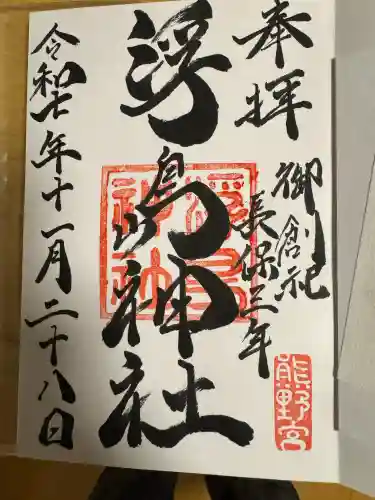 奉拝
御創祀
長保三年
熊野宮
浮島神社
浮島神社
令和七年十一月二十八日